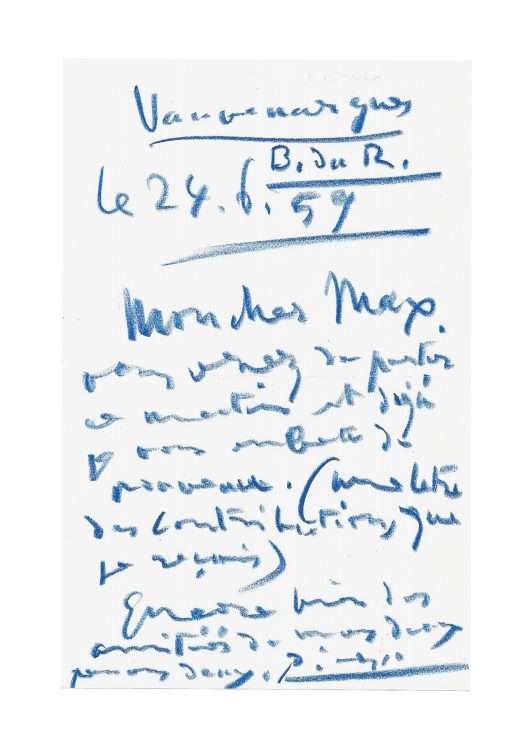 Vauvenargues
B. du R.
le 24.6.59
Mon cher Max,
vous venez de partir
ce matin et déjà
je vous embête de
nouveau. (une lettre
des contributions que
je reçois)
Encore bien des
amitiés de nous deux
pour vous deux. Picasso